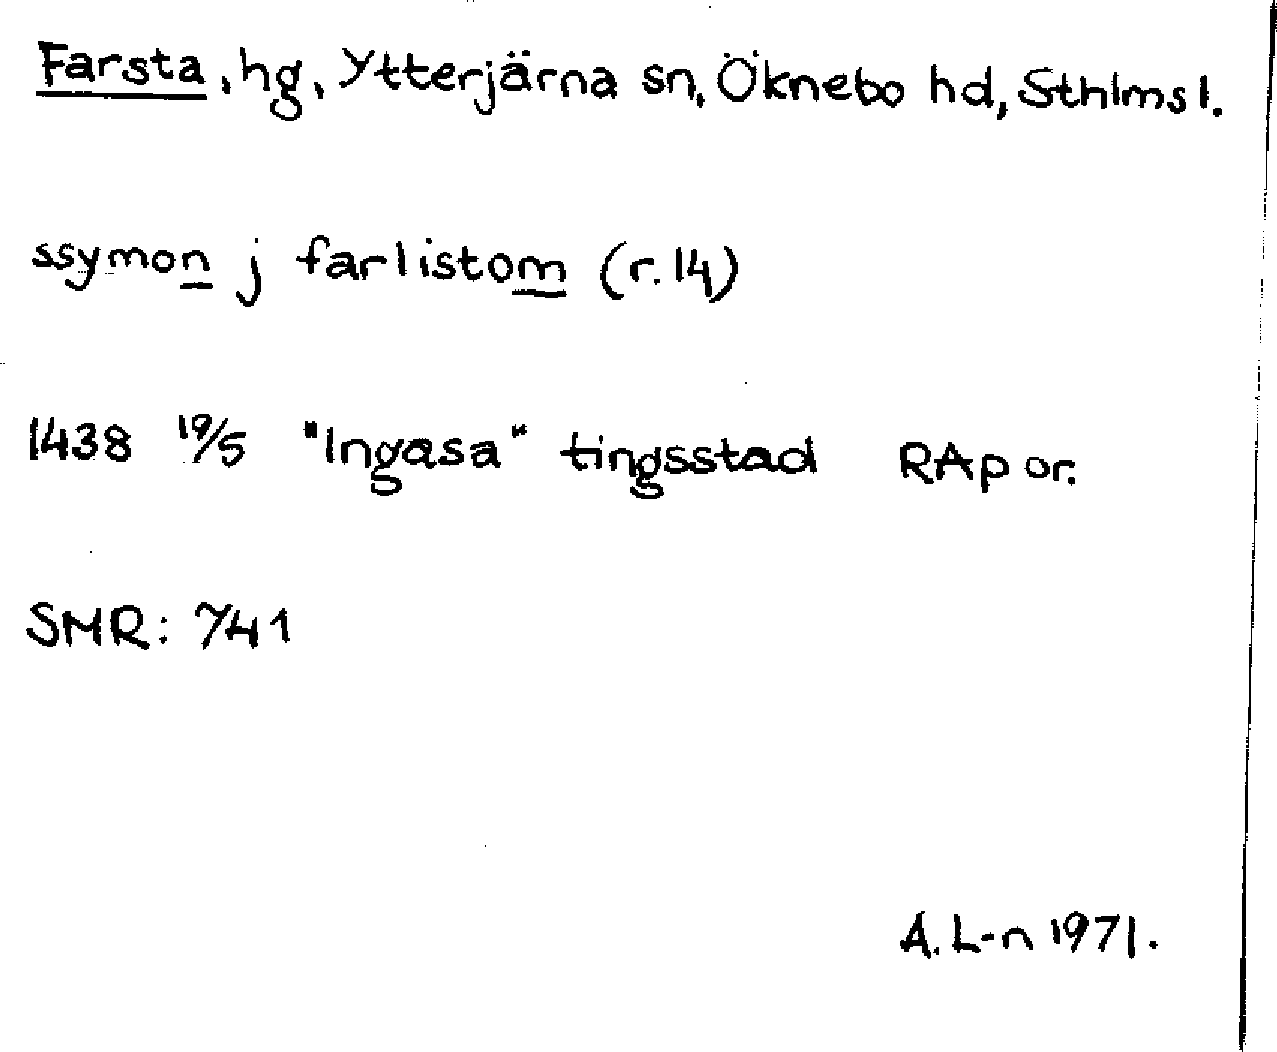 Farsta, hg, Ytterjärna sn, Öknebo hd, Sthlms l.
ssymon j farlistom (r. 14)
1438 19/5 "Ingasa" tingsstad RAp or.
SMR: 741
A. L-n 1971.